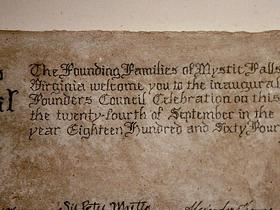 The Founding Families of Mystic Falls
Virginia welcome you to the inaugural
Founders Council Celebration on this
the twenty-fourth of September in the
year Eighteen Hundred and Sixty Four